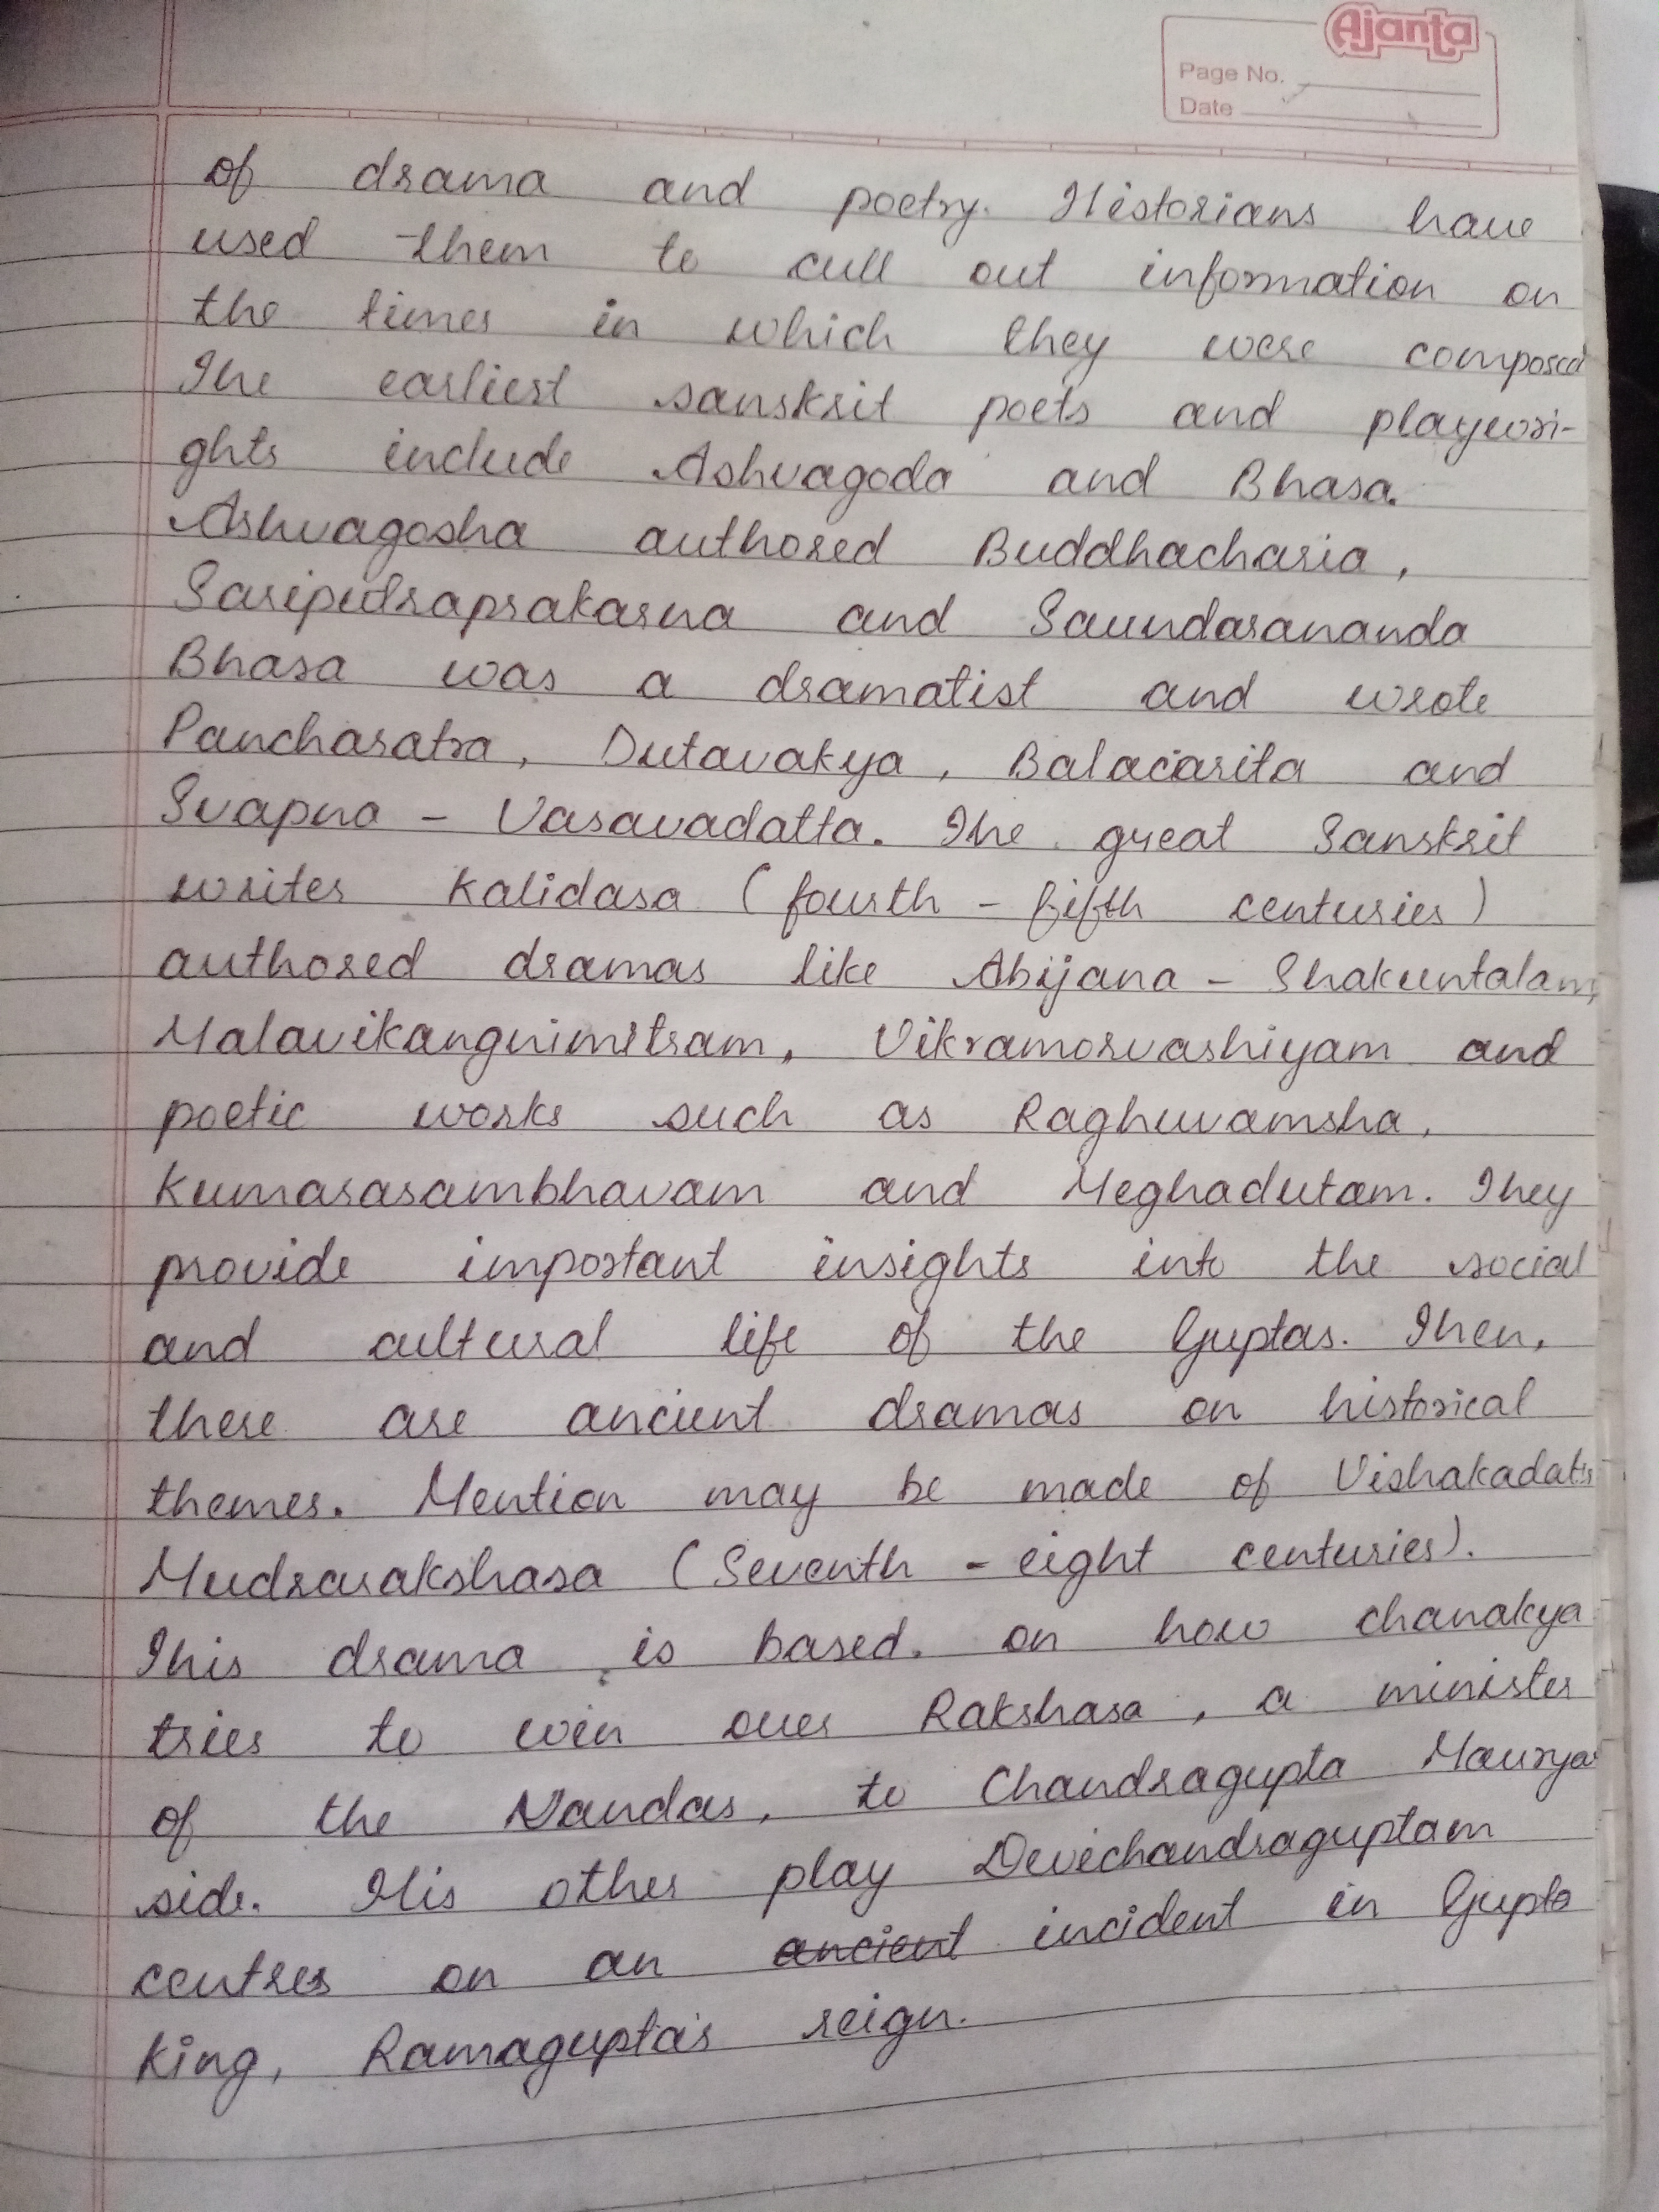 Ajanta
Page No.
Date
of drama and poetry. Historians have
used them to cull out information on
the times in which they were composed
The earliest sanskrit poets and playwri-
ghts include Ashvagoda and Bhasa.
Ashvagosha authored Buddhacharia,
Saripudraprakasna and Saundarananda
Bhasa was a dramatist and wrote
Pancharatra, Dutavakya, Balacarita and
Svapna - Vasavadatta. The great Sanskrit
writer Kalidasa (fourth - fifth centuries)
authored dramas like Abijana - Shakuntalam,
Malavikangnimitram, Vikramorvashiyam and
poetic works such as Raghuvamsha,
Kumarasambhavam and Meghadutam. They
provide important insights into the social
and cultural life of the Guptas. Then,
there are ancient dramas on historical
themes. Mention may be made of Vishakadatts
Mudrarakshasa (Seventh - eight centuries).
This drama is based. on how chanakya
tries to win over Rakshasa, a minister
of the Nandas, to Chandragupta Maurya
side. His other play Devichandraguptam
centres on an ancient incident in Gupta
King, Ramagupta's reign.